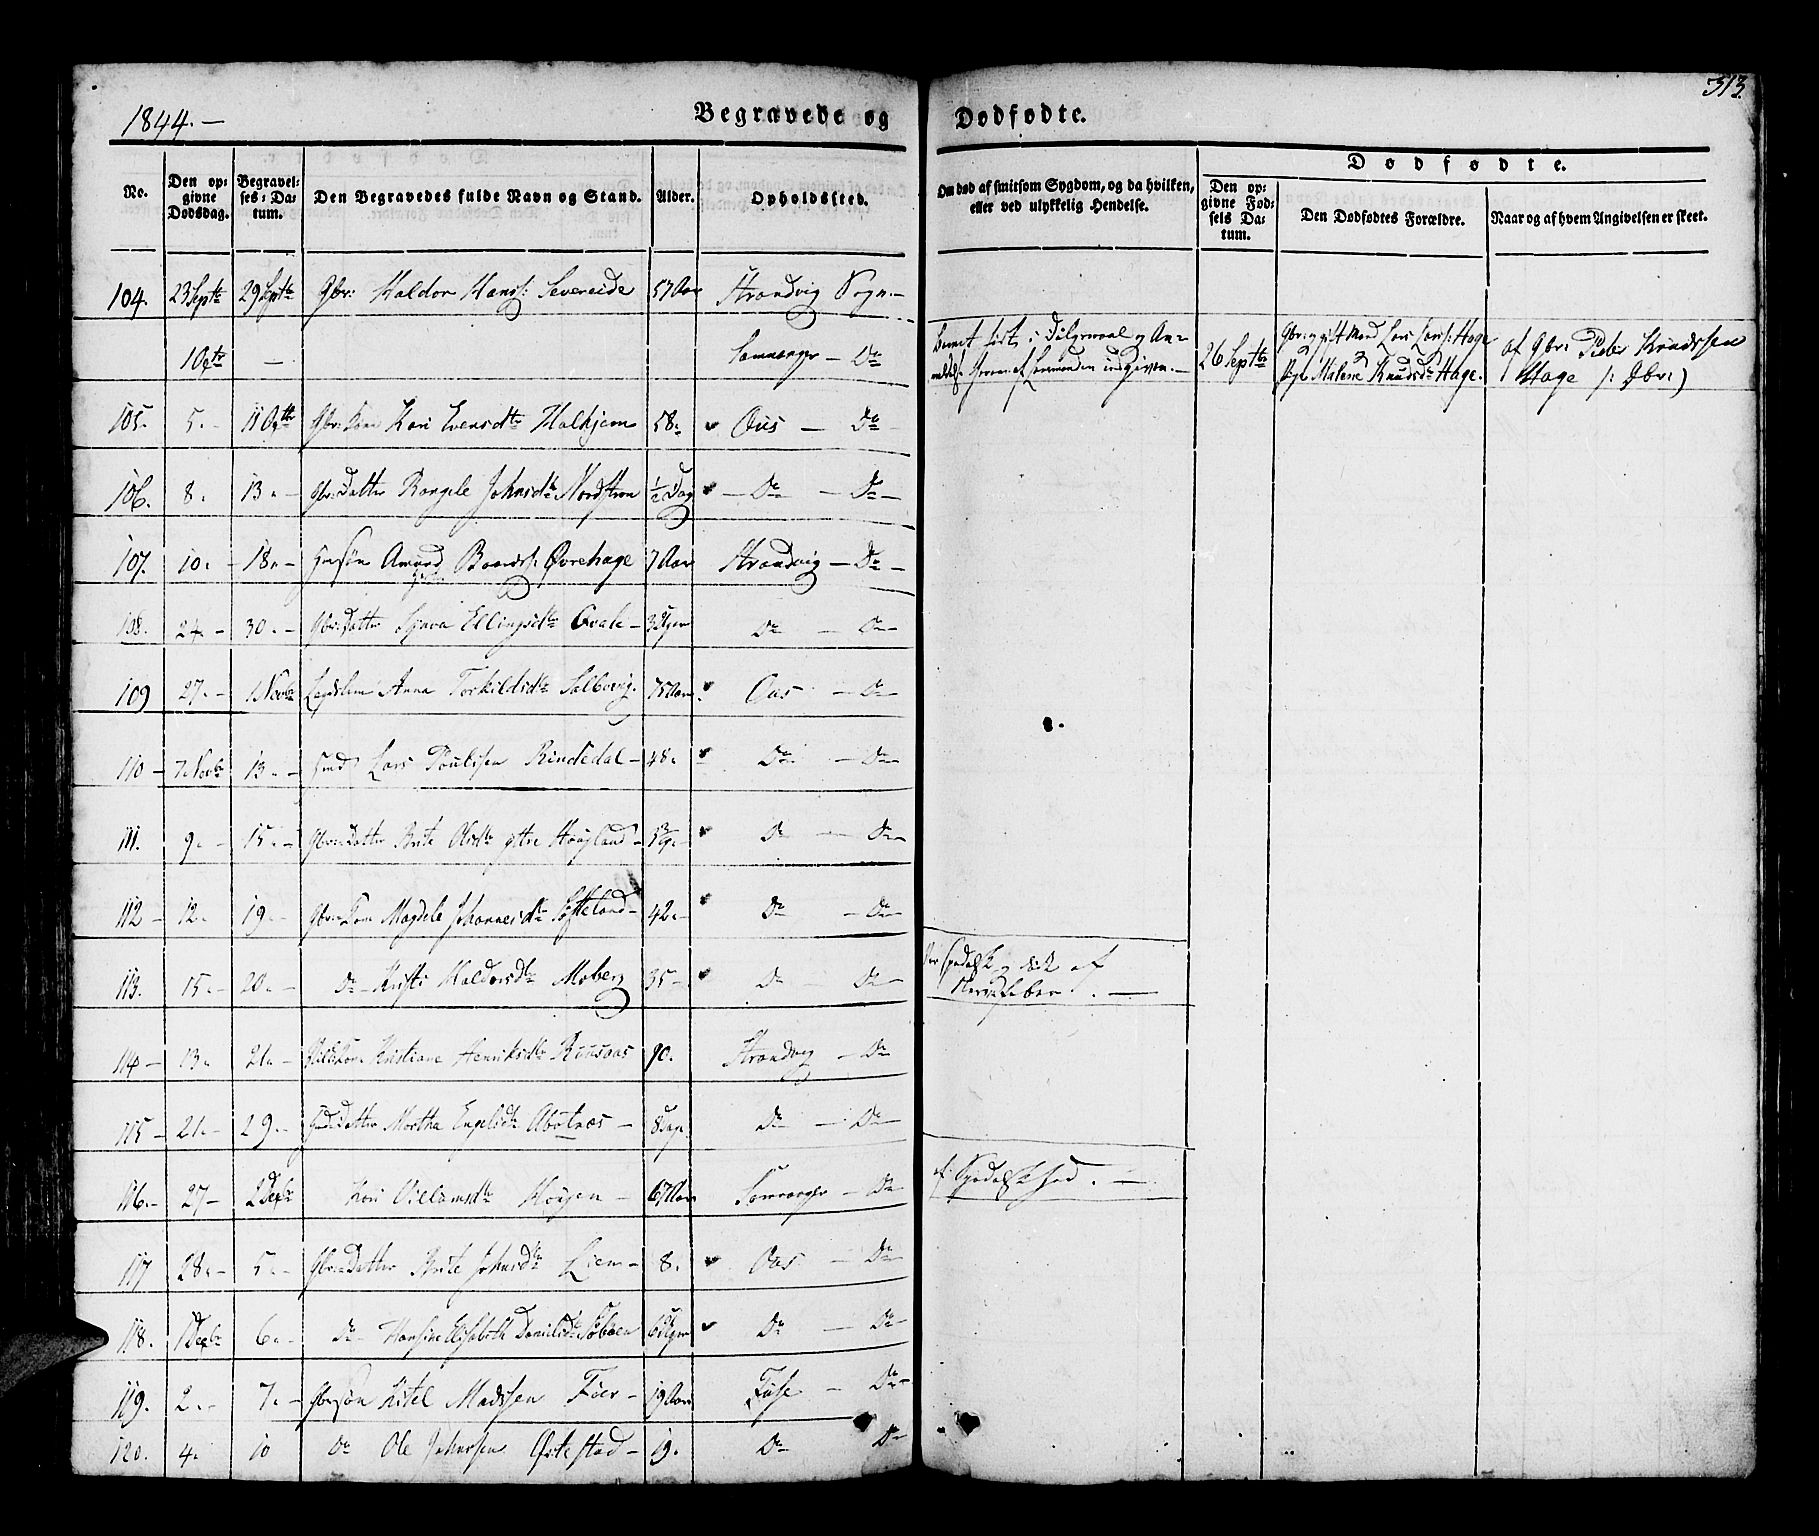 313.
1844. —
Begravede og Dødfødte.
No.
Den opgivne Dødsdag.
Begravelses-Datum.
Den Begravedes fulde Navn og Stand.
Alder.
Opholdssted.
Om død af smitsom Sygdom, og da hvilken, eller ved ulykkelig Hendelse.
Dødfødte.
Den opgivne Fødsels Datum.
Den Dødfødtes Forældre.
Naar og af hvem Angivelsen er skeet.
104. 23 Septr 29 Septr Gbr: Haldor Hans: Severeide 57 Aar Strandvig Sogn. —
10 Octr — Samnanger — Do 26 Septbr Gbr: og gift Mand Lars Lars: Hage Pige Malene Knudsdr Hage. af Gbr: Peder Knudssen Hage /: Gbr:)
105. 5. — 11 Octr Gbr: Kone Kari Iversdtr Halhjem 58. Ous — Do —
106. 8. 13. — Gbr: Datter Rangele Johnsdtr Nordstrøn ½ Dag — Do — Do —
107. 10. — 18. — Søn Amund Baards: Øvrehage 7 Aar Strandvig — Do —
108. 24. — 30. — Gbr: Datter Synva Ellingsdtr Qvale — 3 Uger Do — Do —
109 27. — 1 Novbr Lægdslem Anna Torkildsdtr Solbverg. 75 Aar. Ous — Do —
110 — 7. Novbr 13. — Lars Poulssen Rindedal — 48. Do — Do —
111. 9. — 15. — Gbr: Datter Brite Olsdtr yttre Hougland — Do — Do —
112 — 12. — 19. — Gbr: Kone Magdele Johannesdtr Søfteland — 42. — Do — Do —
113. 15. — 20. — Do — Kristi Haldorsdtr Moberg 35 — Do — Do — Var Spedalsk og død af Nervefeber. —
114 — 13. 21. — Kristiane Henriksdtr Ruusaas 90. Strandvig — Do —
115 — 21. — 29. — Datter Martha Engelsdtr Abotnæs — 8 Dage. Do — Do —
116. — 27 — 2 Decbr Kari Villumsdtr Hougen — 67 Aar Samnanger — Do af Spedalskhed. —
117 28. — 5. — Gbr: Datter Brite Johnsdtr Liem — 8. Ous — Do —
118. 1 Decbr 6. — Do — Hansine Elisabeth Danielsdtr Søbøen 6 Uger Do — Do —
119. 2. — 7. — Gbr: søn Kitel Madssen Tuer — 19 Aar Fuse — Do —
120. 4. 10 Do Ole Johnssen Østestad — 19. Do — Do —